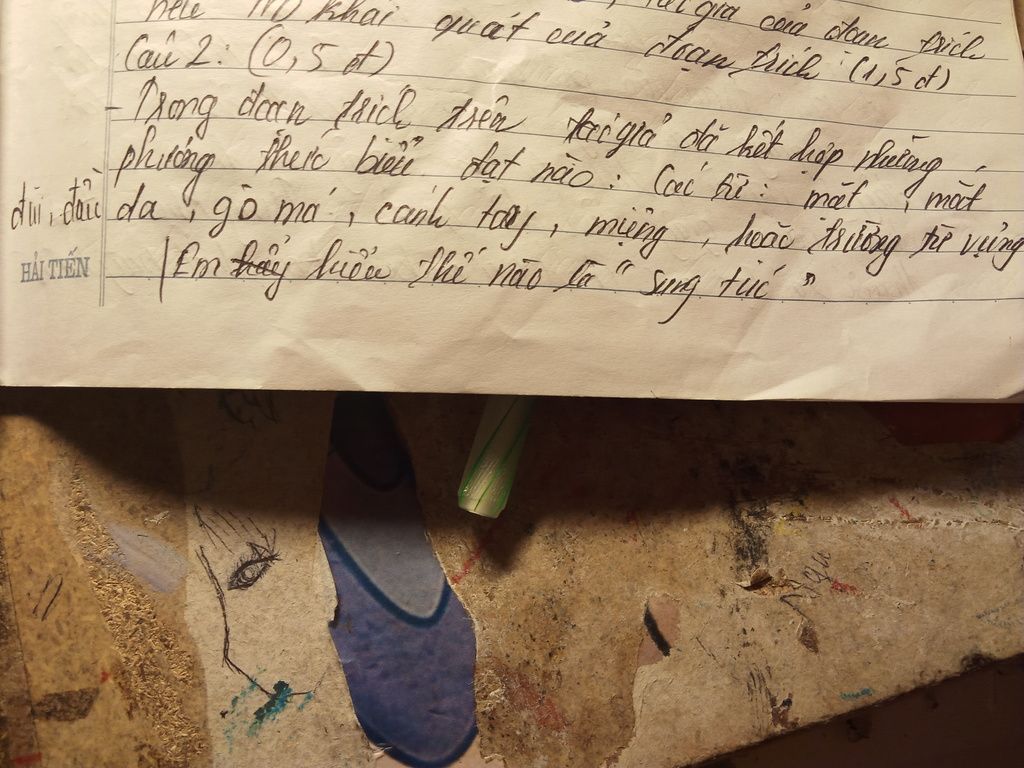 nêu nội khái quát của đoạn trích (1,5 đ)
tác giả của đoạn trích
Câu 2: (0,5 đ)
- Trong đoạn trích trên tác giả đã kết hợp những
phương thức biểu đạt nào? Các từ: mắt, mắt
đùi, đầu, da, gò má, cánh tay, miệng, hoặc trường từ vựng
Em hãy hiểu thế nào là "sung túc"
HẢI TIẾN